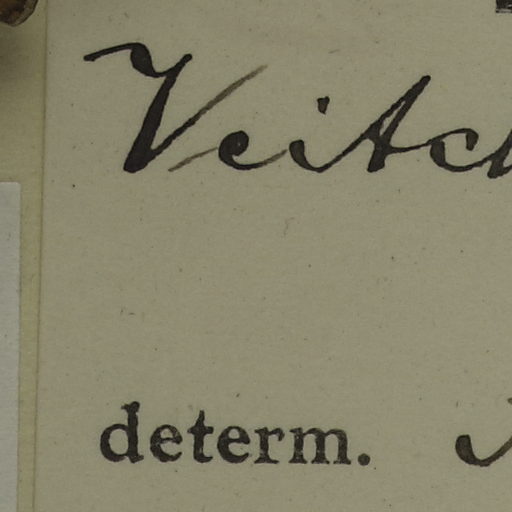 Veitch
determ.